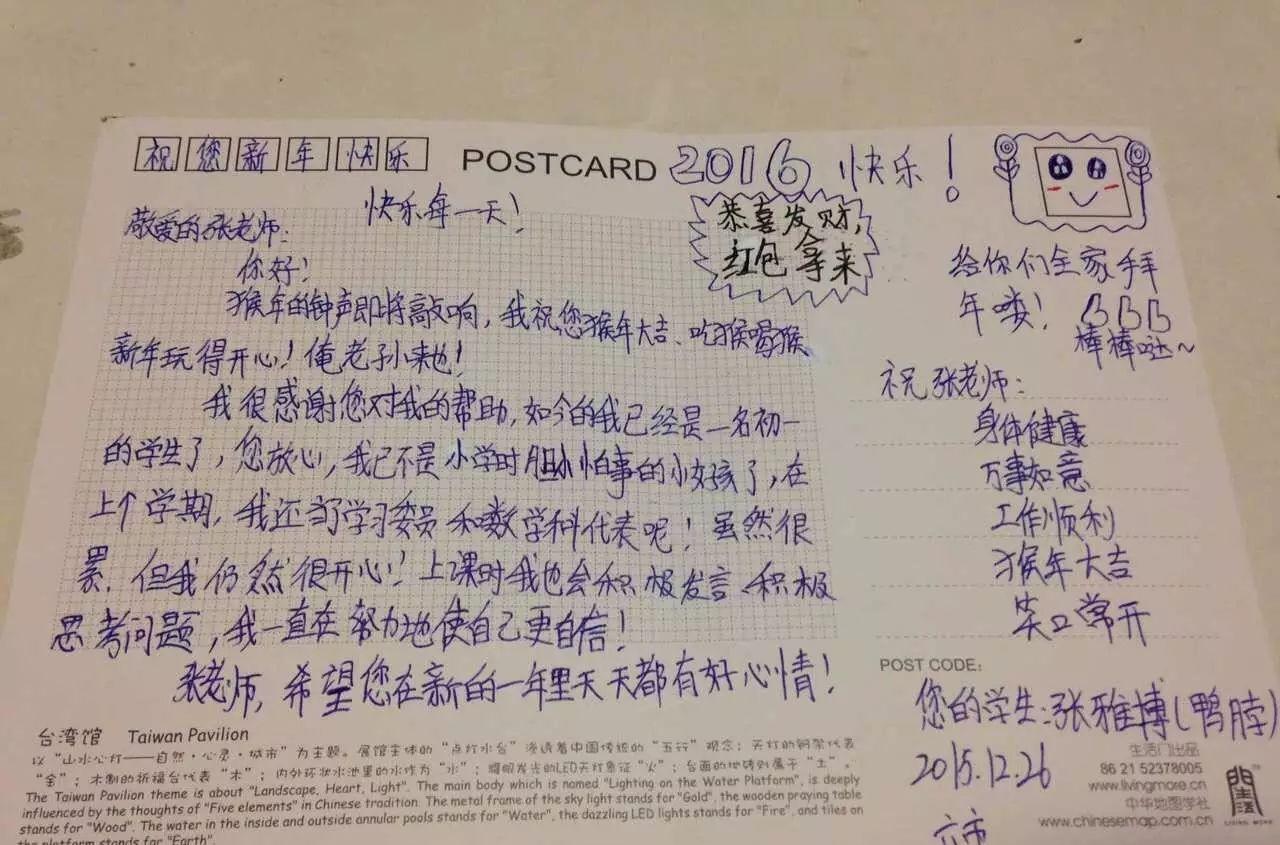 祝您新年快乐
POSTCARD 2016 快乐！
快乐每一天！
恭喜发财，
红包拿来
敬爱的张老师：
你好！
猴年的钟声即将敲响，我祝您猴年大吉、吃猴喝猴
新年玩得开心！俺老孙来也！
我很感谢您对我的帮助，如今的我已经是一名初一
的学生了，您放心，我已不是小学时胆小怕事的小女孩了，在
上个学期，我还当了学习委员和数学科代表呢！虽然很
累，但我仍然很开心！上课时我也会积极发言、积极
思考问题，我一直在努力地使自己更自信！
张老师，希望您在新的一年里天天都有好心情！
给你们全家拜
年喽！
棒棒哒~
祝张老师：
身体健康
万事如意
工作顺利
猴年大吉
笑口常开
POST CODE:
您的学生：张雅博(鸭脖)
2015.12.26
台湾馆 Taiwan Pavilion
以“山水心灯——自然·心灵·城市”为主题。展馆主体的“点灯水台”渗透着中国传统的“五行”观念：天灯的钢架代表
“金”；木制的祈福台代表“木”；内外环状水池里的水作为“水”；耀眼发光的LED天灯象征“火”；台面的地砖则属于“土”。
The Taiwan Pavilion theme is about "Landscape, Heart, Light". The main body which is named "Lighting on the Water Platform", is deeply
influenced by the thoughts of "Five elements" in Chinese tradition. The metal frame of the sky light stands for "Gold", the wooden praying table
stands for "Wood". The water in the inside and outside annular pools stands for "Water", the dazzling LED lights stands for "Fire", and tiles on
the platform stands for "Earth".
生活门出品
86 21 52378005
www.livingmore.cn
中华地图学社
www.chinesemap.com.cn
LIVING MORE